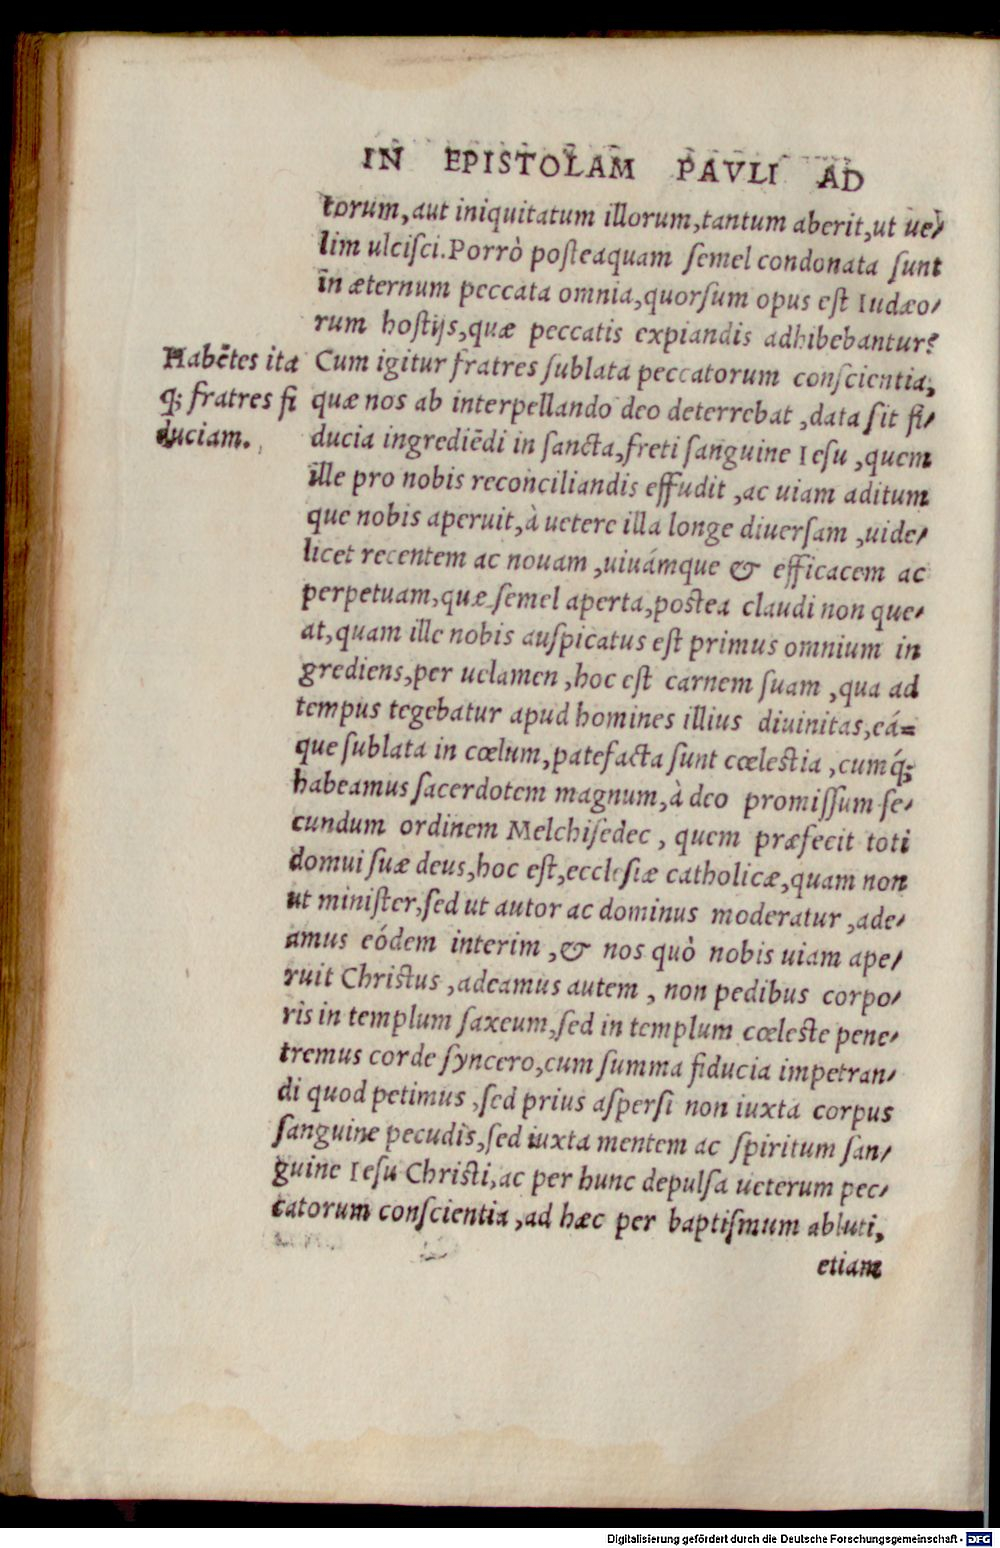 IN EPISTOLAM PAVLI AD
torum, aut iniquitatum illorum, tantum aberit, ut ue/
lim ulciſci. Porrò poſteaquam ſemel condonata ſunt
in æternum peccata omnia, quorſum opus eſt Iudæo/
rum hoſtijs, quæ peccatis expiandis adhibebantur?
Habētes ita
q; fratres fi
duciam.
Cum igitur fratres ſublata peccatorum conſcientia,
quæ nos ab interpellando deo deterrebat, data ſit fi/
ducia ingrediēdi in ſancta, freti ſanguine Ieſu, quem
ille pro nobis reconciliandis effudit, ac uiam aditum
que nobis aperuit, à uetere illa longe diuerſam, uide/
licet recentem ac nouam, uiuámque & efficacem ac
perpetuam, quæ ſemel aperta, postea claudi non que/
at, quam ille nobis auſpicatus eſt primus omnium in
grediens, per uelamen, hoc eſt carnem ſuam, qua ad
tempus tegebatur apud homines illius diuinitas, eá=
que ſublata in cœlum, patefacta ſunt cœlestia, cumq́;
habeamus ſacerdotem magnum, à deo promiſſum ſe/
cundum ordinem Melchiſedec, quem præfecit toti
domui ſuæ deus, hoc eſt, eccleſiæ catholicæ, quam non
ut miniſter, ſed ut autor ac dominus moderatur, ade/
amus eódem interim, & nos quò nobis uiam ape/
ruit Christus, adeamus autem, non pedibus corpo/
ris in templum ſaxeum, ſed in templum cœleste pene/
tremus corde ſyncero, cum ſumma fiducia impetran/
di quod petimus, ſed prius aſperſi non iuxta corpus
ſanguine pecudis, ſed iuxta mentem ac ſpiritum ſan/
guine Ieſu Chriſti, ac per hunc depulſa ueterum pec/
catorum conſcientia, ad hæc per baptiſmum abluti,
etiam
Digitalisierung gefördert durch die Deutsche Forschungsgemeinschaft - DFG